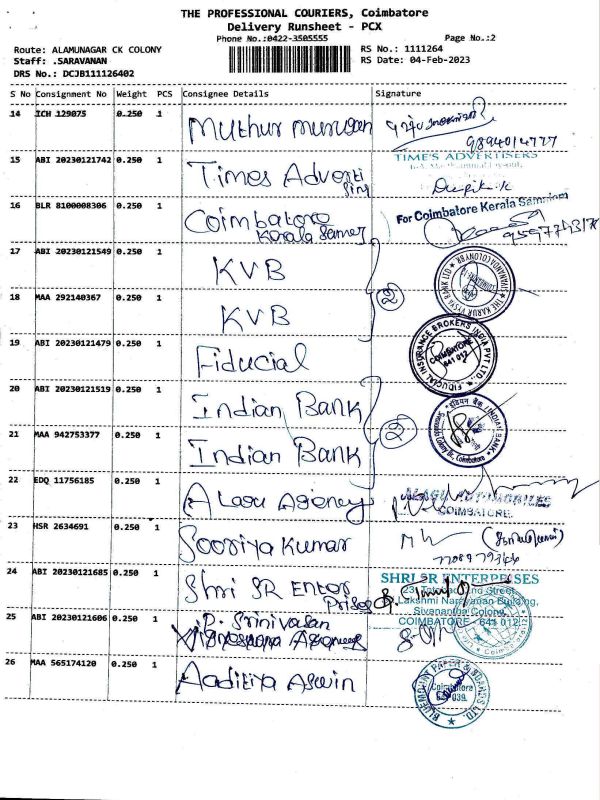 THE PROFESSIONAL COURIERS, Coimbatore
Delivery Runsheet - PCX
Phone No.:0422-3505555
Page No.:2
Route: ALAMUNAGAR CK COLONY
RS No.: 1111264
Staff: .SARAVANAN
RS Date: 04-Feb-2023
DRS No.: DCJB111126402
S No Consignment No Weight PCS Consignee Details Signature
14 ICH 129075 0.250 1 Muthur Murugan
9894014777
15 ABI 20230121742 0.250 1 Times Adverti
sing
TIME'S ADVERTISERS
Deepik.k
16 BLR 8100008306 0.250 1 Coimbatore
Kerala Samej
For Coimbatore Kerala Samajam
17 ABI 20230121549 0.250 1 KVB
THE KARUR VYSYA BANK LTD
SIVANANDA COLONY BR
18 MAA 292140367 0.250 1 KVB
2
19 ABI 20230121479 0.250 1 Fiducial
FIDUCIAL INSURANCE BROKERS INDIA PVT LTD.
COIMBATORE
641 012
20 ABI 20230121519 0.250 1 Indian Bank
इंडियन बैंक / INDIAN BANK
Sivananda Colony Br, Coimbatore
21 MAA 942753377 0.250 1 Indian Bank
2
22 EDQ 11756185 0.250 1 Alagu Agency
COIMBATORE.
23 HSR 2634691 0.250 1 Sooriya Kumar
24 ABI 20230121685 0.250 1 Shri SR Enter
Prises
SHRI SR ENTERPRISES
Lakshmi Narayanan Building,
Sivananda Colony,
COIMBATORE - 641 012.
25 ABI 20230121606 0.250 1 P. Srinivasan
Vigneshwara Agencies
Coimbatore
26 MAA 565174120 0.250 1 Aaditiya Aswin
BLUEMOUNT PAPER & BOARDS LTD.
Coimbatore